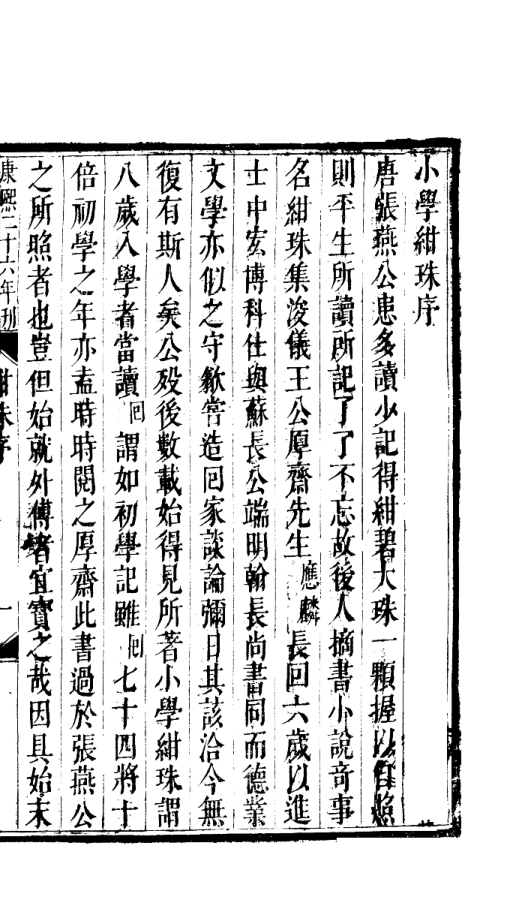 小學紺珠序
唐張燕公患多讀少記得紺碧大珠一顆握以自照
則平生所讀所記了了不忘故後人摘書小說奇事
名紺珠集浚儀王公厚齋先生應麟長回六歲以進
士中宏博科仕與蘇長公端明翰長尚書同而德業
文學亦似之守歙嘗造回家談論彌日其該洽今無
復有斯人矣公歿後數載始得見所著小學紺珠謂
八歲入學者當讀回謂如初學記雖回七十四將十
倍初學之年亦盍時時閱之厚齋此書過於張燕公
之所照者也豈但始就外傅者宜寶之哉因具始末
康熙二十六年刊
紺珠序
一